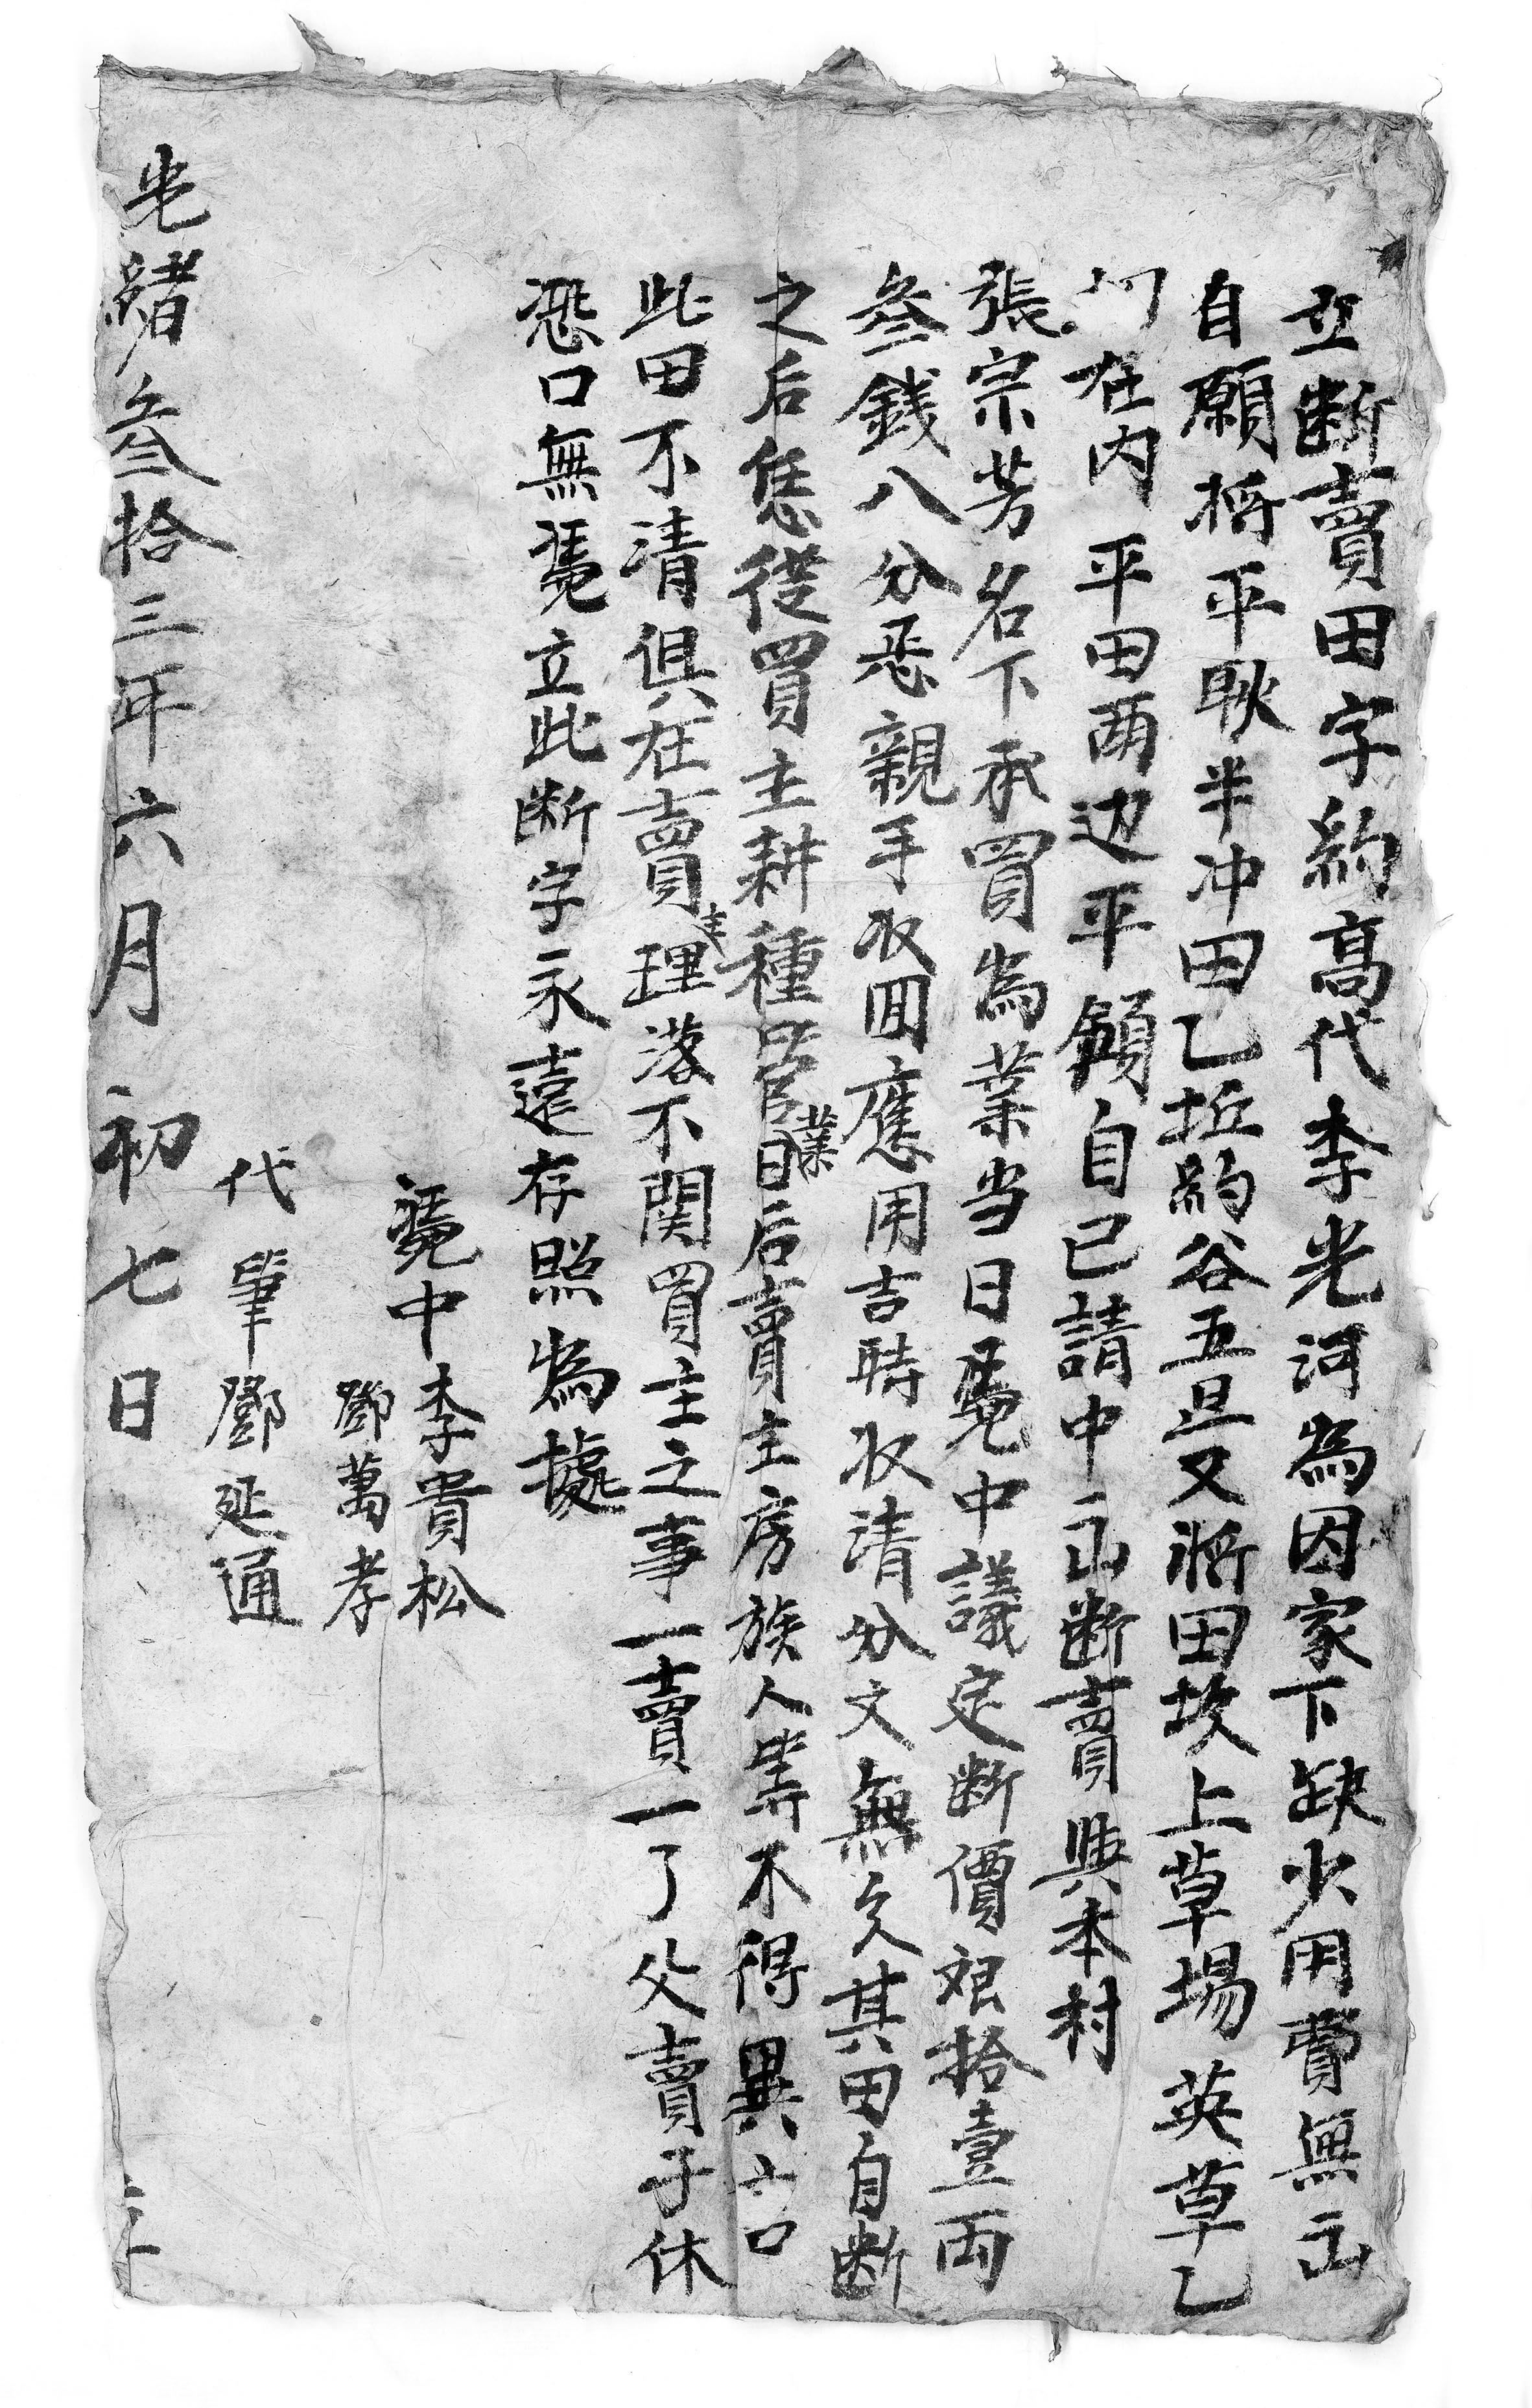 立断賣田字約髙代李光河為因家下缺少用費無出
自願将平耿半冲田乙坵約谷五旦又將田坎上草場英草乙
在内平田両辺平領自己請中出断賣與本村
張宗芳名下承買為業当日凴中議定断價艮拾壹両
叁錢八分悉親手収囬應用吉時収清分文無欠其田自断
之后恁從買主耕種管業日后賣主房族人等不得異言
此田不清俱在賣主理落不関買主之事一賣一了父賣子休
恐口無凴立此断字永遠存照為據
凴中李貴松
鄧萬孝
代筆鄧延通
光緒叁拾三年六月初七日